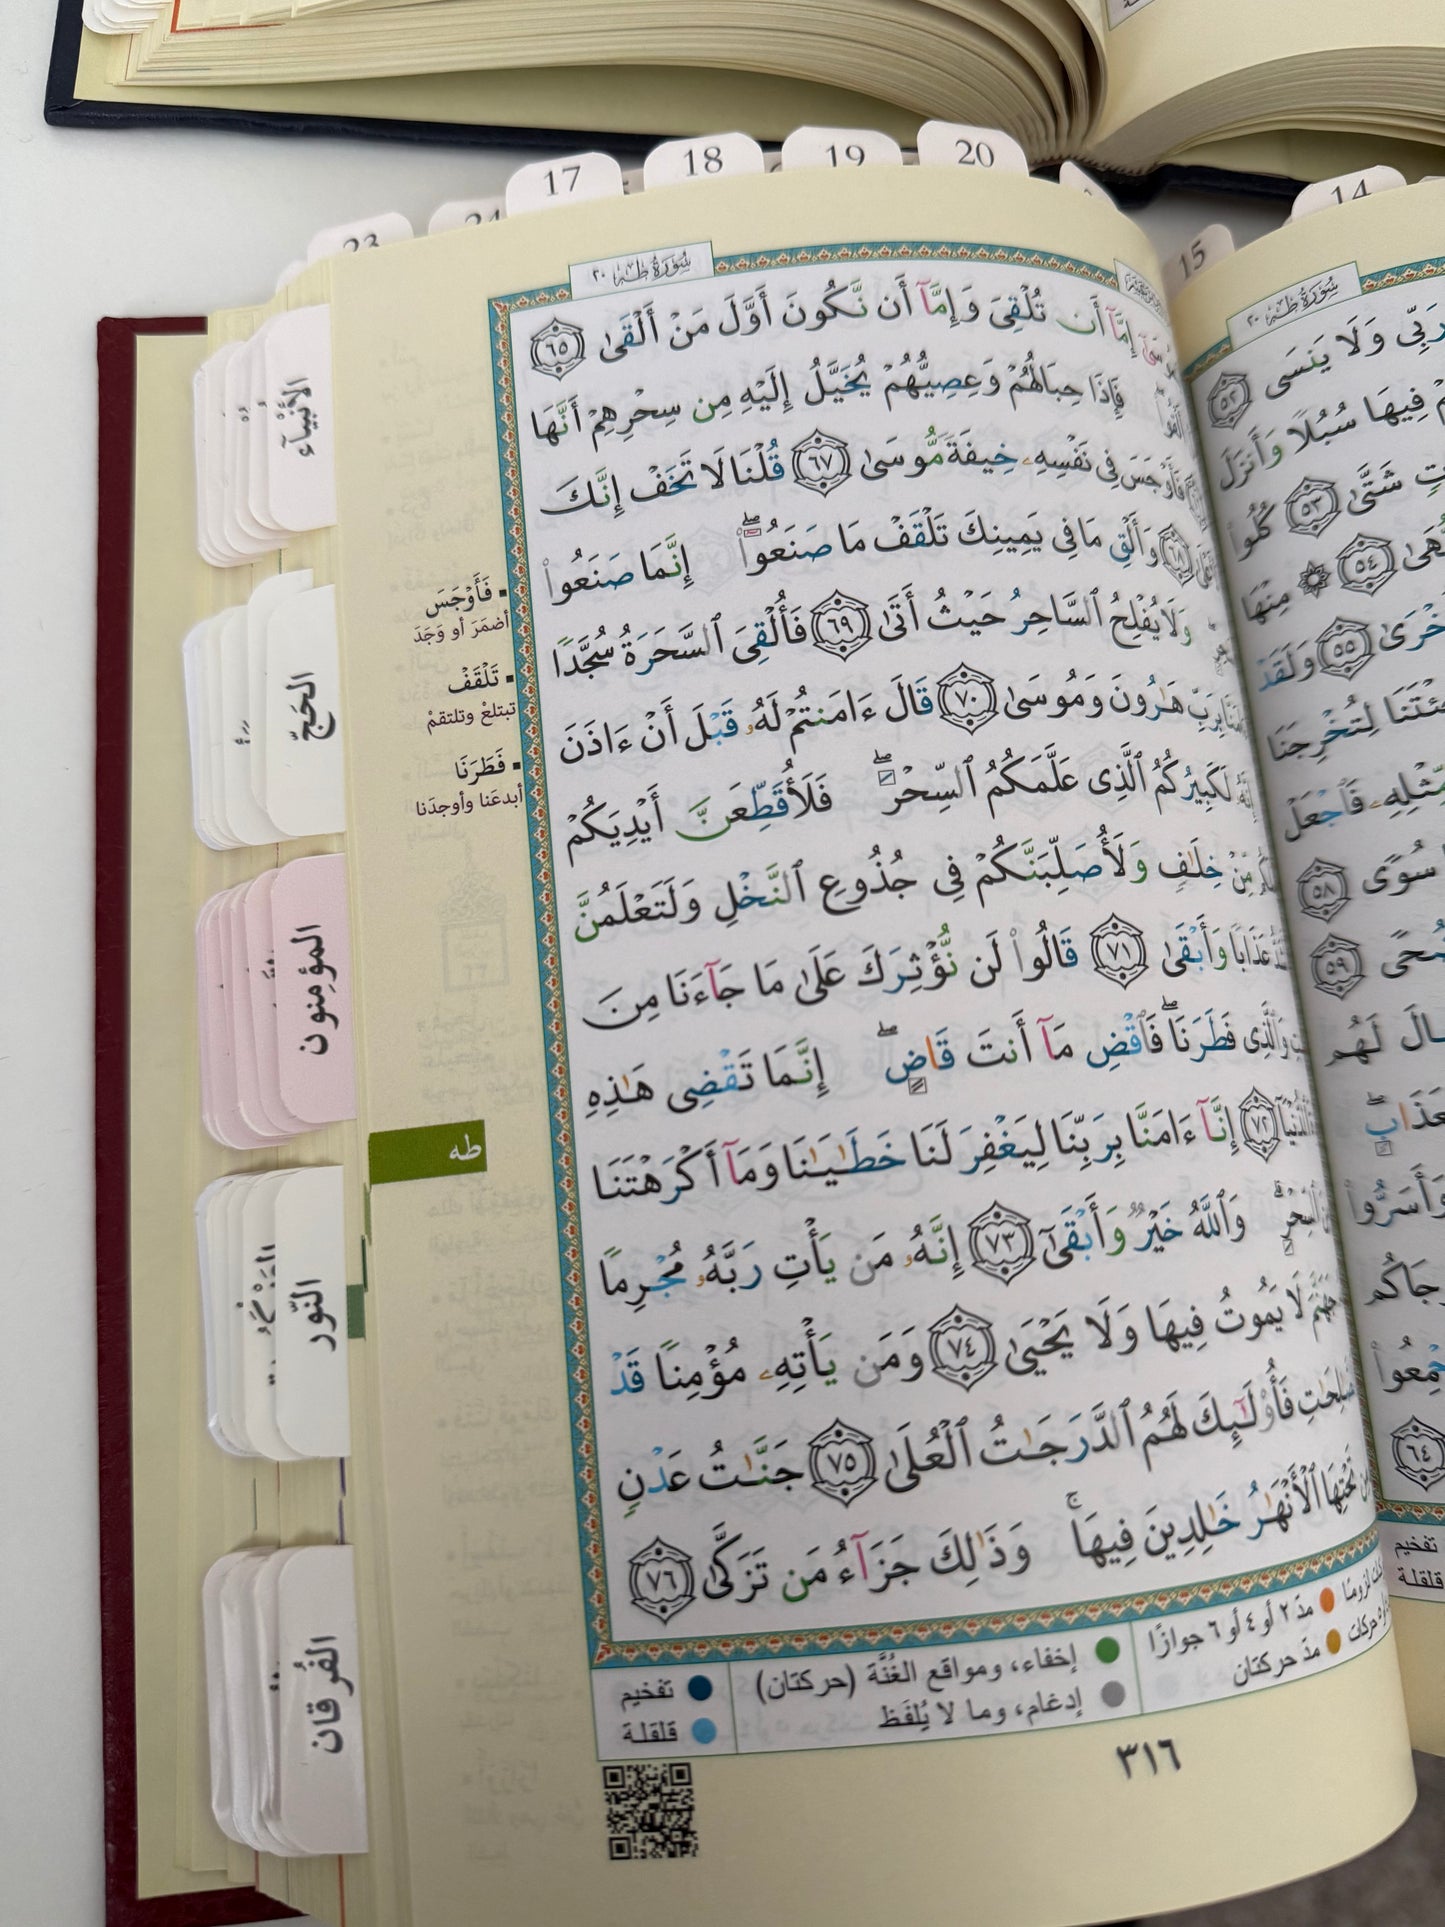 17
18
19
20
23
24
14
15
سُورَةُ طه ٢٠
إِمَّآ أَن تُلْقِىَ وَإِمَّآ أَن نَّكُونَ أَوَّلَ مَنْ أَلْقَىٰ ٦٥
فَإِذَا حِبَالُهُمْ وَعِصِيُّهُمْ يُخَيَّلُ إِلَيْهِ مِن سِحْرِهِمْ أَنَّهَا
فَأَوْجَسَ فِى نَفْسِهِۦ خِيفَةً مُّوسَىٰ ٦٧ قُلْنَا لَا تَخَفْ إِنَّكَ
٦٨ وَأَلْقِ مَا فِى يَمِينِكَ تَلْقَفْ مَا صَنَعُوٓا۟ ۖ إِنَّمَا صَنَعُوا۟
وَلَا يُفْلِحُ ٱلسَّاحِرُ حَيْثُ أَتَىٰ ٦٩ فَأُلْقِىَ ٱلسَّحَرَةُ سُجَّدًا
بِرَبِّ هَـٰرُونَ وَمُوسَىٰ ٧٠ قَالَ ءَامَنتُمْ لَهُۥ قَبْلَ أَنْ ءَاذَنَ
لَكَبِيرُكُمُ ٱلَّذِى عَلَّمَكُمُ ٱلسِّحْرَ ۖ فَلَأُقَطِّعَنَّ أَيْدِيَكُمْ
مِّنْ خِلَـٰفٍ وَلَأُصَلِّبَنَّكُمْ فِى جُذُوعِ ٱلنَّخْلِ وَلَتَعْلَمُنَّ
عَذَابًا وَأَبْقَىٰ ٧١ قَالُوا۟ لَن نُّؤْثِرَكَ عَلَىٰ مَا جَآءَنَا مِنَ
وَٱلَّذِى فَطَرَنَا ۖ فَٱقْضِ مَآ أَنتَ قَاضٍ ۖ إِنَّمَا تَقْضِى هَـٰذِهِ
ٱلدُّنْيَآ ٧٢ إِنَّآ ءَامَنَّا بِرَبِّنَا لِيَغْفِرَ لَنَا خَطَـٰيَـٰنَا وَمَآ أَكْرَهْتَنَا
ٱلسِّحْرِ ۗ وَٱللَّهُ خَيْرٌ وَأَبْقَىٰٓ ٧٣ إِنَّهُۥ مَن يَأْتِ رَبَّهُۥ مُجْرِمًا
جَهَنَّمَ لَا يَمُوتُ فِيهَا وَلَا يَحْيَىٰ ٧٤ وَمَن يَأْتِهِۦ مُؤْمِنًا قَدْ
فَأُو۟لَـٰٓئِكَ لَهُمُ ٱلدَّرَجَـٰتُ ٱلْعُلَىٰ ٧٥ جَنَّـٰتُ عَدْنٍ
تَحْتِهَا ٱلْأَنْهَـٰرُ خَـٰلِدِينَ فِيهَا ۚ وَذَٰلِكَ جَزَآءُ مَن تَزَكَّىٰ ٧٦
فَأَوْجَسَ
أضمَرَ أو وَجَدَ
تَلْقَفْ
تبتلعْ وتلتقمْ
فَطَرَنَا
أبدعَنا وأوجدَنا
طه
مدّ ٢ أو ٤ أو ٦ جوازًا
مدّ حركتان
إخفاء، ومواقع الغُنَّة (حركتان)
إدغام، وما لا يُلفَظ
تفخيم
قلقلة
٣١٦
الأنْبيَآء
الحَجّ
المؤمِنون
النّور
الفُرقان
سُورَةُ طه ٢٠
رَبِّى وَلَا يَنسَى ٥٢
فِيهَا سُبُلًا وَأَنزَلَ
شَتَّىٰ ٥٣ كُلُوا۟
٥٤ مِنْهَا
٥٥ وَلَقَدْ
لِتُخْرِجَنَا
فَٱجْعَلْ
سُوًى ٥٨
٥٩
لَهُم
وَأَسَرُّوا۟
٦٤
تفخيم
قلقلة